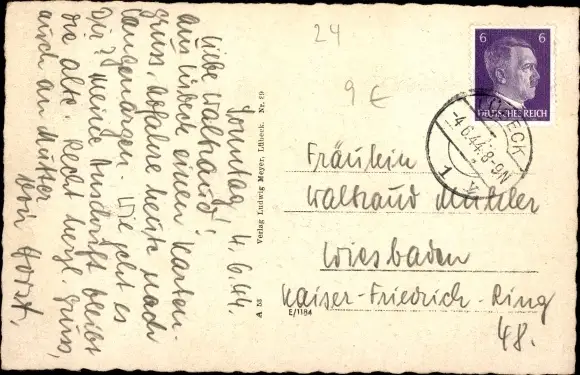 Sonntag, 4.6.44.
Liebe Waltraud!
Aus Lübeck einen Karten-
gruss. Fahre heute nach
Langenhagen. Wie geht es
Dir? Meine Anschrift bleibt
die alte. Recht herzl. Gruss,
auch an Mutter
Dein Horst.
A 53 Verlag Ludwig Meyer, Lübeck. Nr. 89
E/1184
24
9 €
6 6
DEUTSCHES REICH
LÜBECK
-4.6.44.8-9N
1
Fräulein
Waltraud
Wiesbaden
Kaiser-Friedrich-Ring
48.